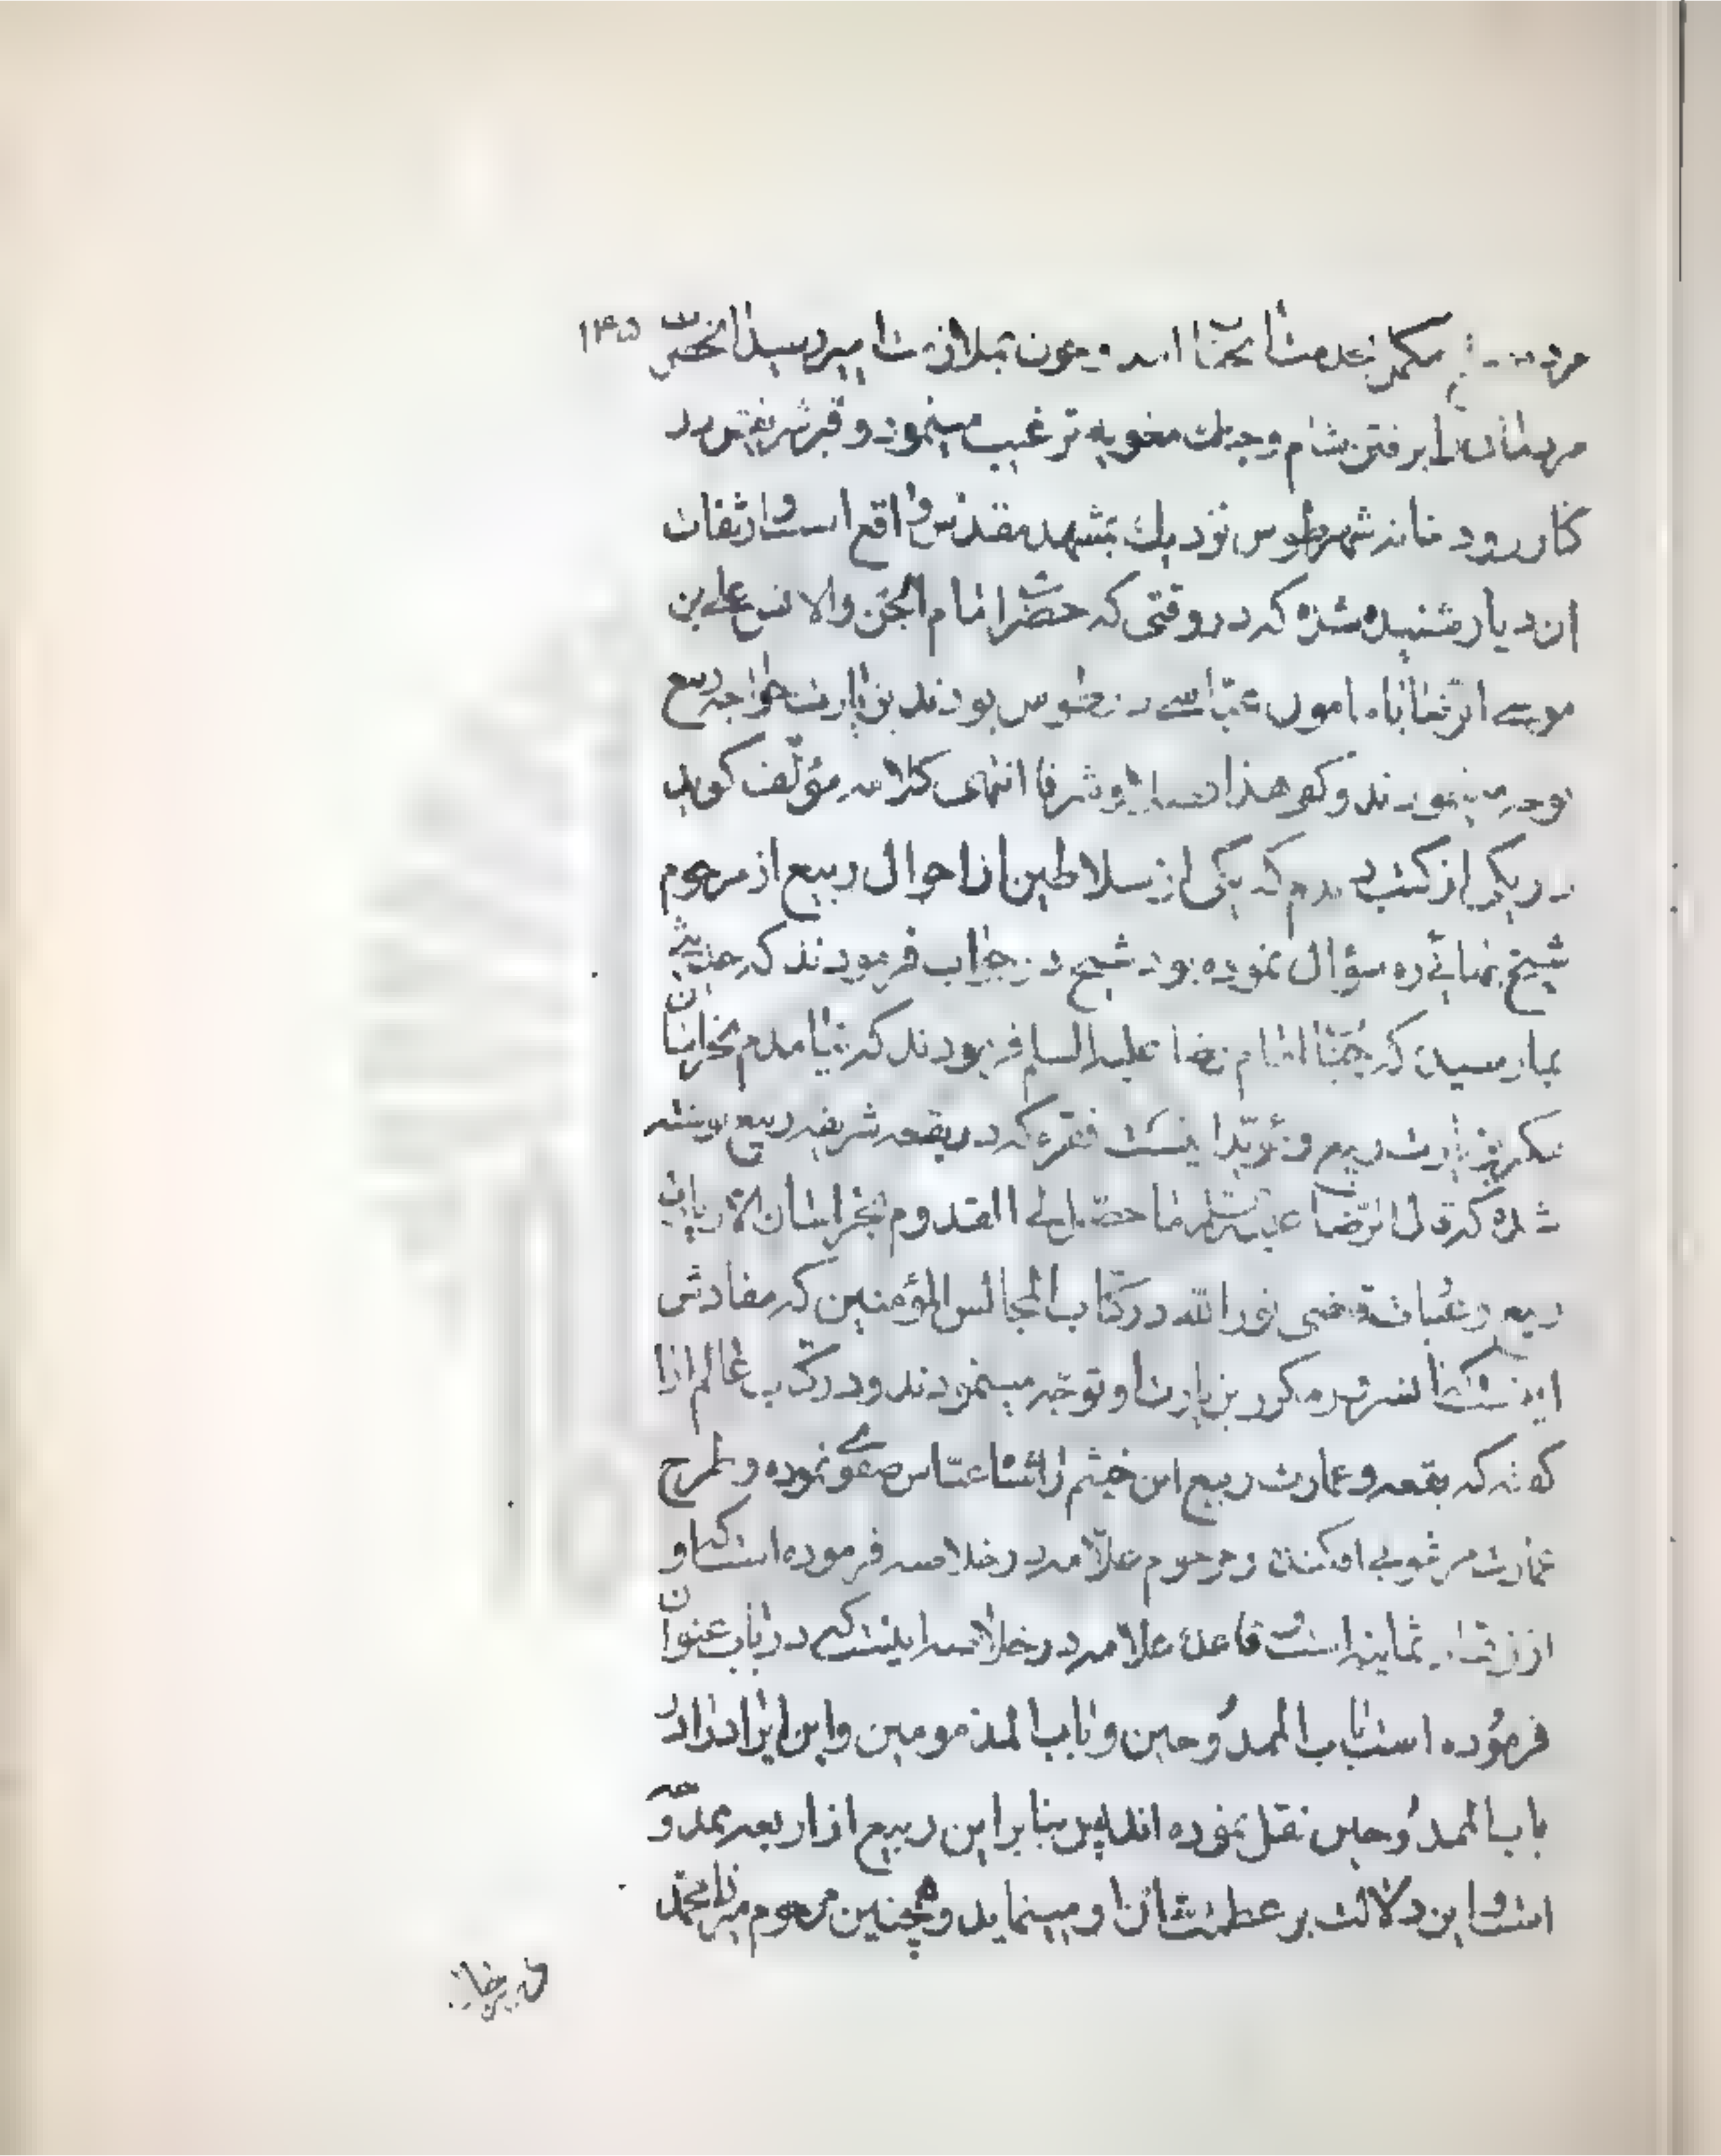 ۱۴۵
مردمانرا برفتن شام وجنك معویه ترغیب مینمود و قبر شریفش در
کنار رود خانه شهر طوس نزدیك بمشهد مقدس واقع است و از ثقات
ان دیار شنیده شده که در وقتی که حضرت امام الجن والانس علے بن
موسے الرضا باه مامون عباسے در طوس بودند بزیارت خواجه ربیع
توجه مینمودند وکفی هذا شرفا انتهی کلامه مؤلف کوید
در یکی از کتب دیدم که یکی از سلاطین از احوال ربیع از مرحوم
شیخ بهائے ره سؤال نموده بود شیخ در جواب فرمودند که حدیثے
بما رسیده که جناب امام رضا علیه السلام فرمودند که نیامدم بخراسان
مکر بزیارت ربیع ومؤید اینست فقره که در بقعه شریفه ربیع نوشته
شده که قال الرضا علیه السلم ما حصل لے القدوم بخراسان الا زیارة
ربیع و عبارت قاضی نور الله در کتاب المجالس المؤمنین که مفادش
اینست انسرور مکرر بزیارت او توجه مینمودند و در کتاب عالم ارا
که بقعه وعمارت ربیع ابن خیثم را شاه عباس صفوے نموده و طرح
عمارت مرغوبے افکنده ومرحوم علامه در خلاصه فرموده است که او
از زهاد ثمانیه است و قاعدۀ علامه در خلاصه اینست که در باب عنوان
فرموده است باب الممدوحین و باب المذمومین و این ایراد را در
باب الممدوحین نقل نموده اند پس بنابراین ربیع از اربعه ممدوحه
است و این دلالت بر عظمت شان او مینماید و همچنین مرحوم میرزا محمد